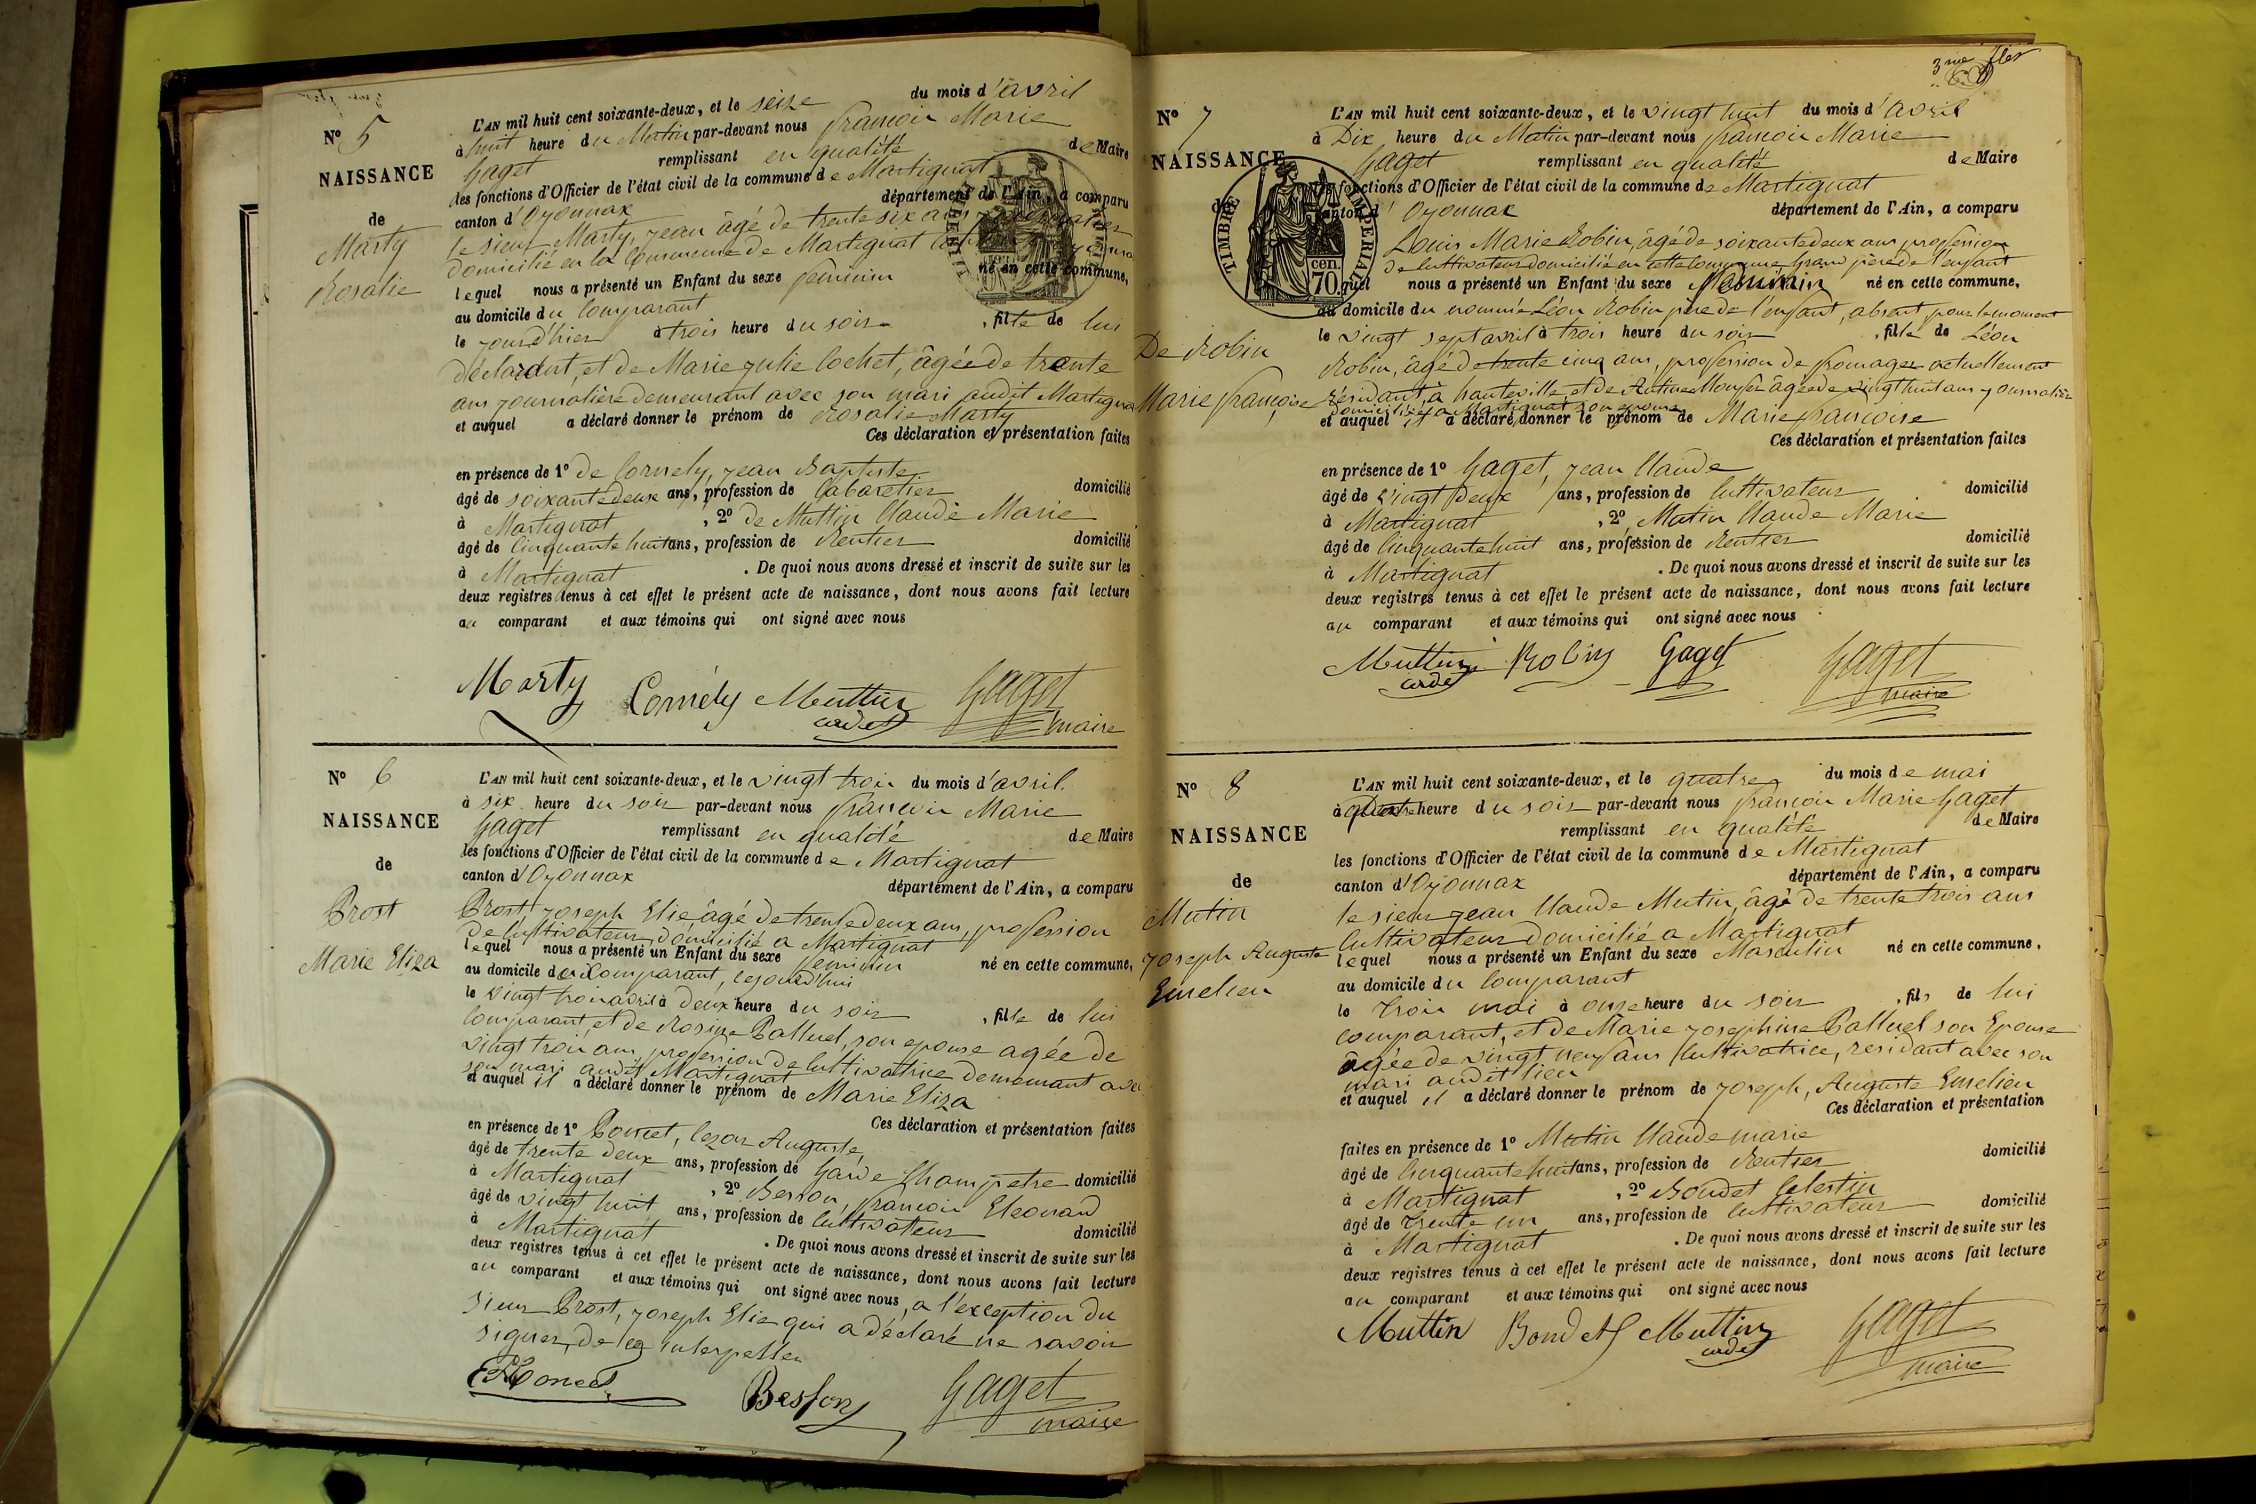 N° 5
NAISSANCE
de
Marty
Rosalie
L'AN mil huit cent soixante-deux, et le seize du mois d'avril
à huit heure du Matin par-devant nous françois Marie
Gaget remplissant en qualité de Maire
les fonctions d'Officier de l'état civil de la commune de Martignat
canton d'Oyonnax département de l'Ain, a comparu
le sieur Marty, jean âgé de trente six ans
domicilié en la Commune de Martignat
lequel nous a présenté un Enfant du sexe féminin né en cette commune,
au domicile du Comparant
le jour d'hier à trois heure du soir, fille de lui
déclarant, et de Marie julie Cochet, âgée de trente
ans journalière demeurant avec son mari audit Martignat
et auquel a déclaré donner le prénom de Rosalie Marty
Ces déclaration et présentation faites
en présence de 1° de Cornely, jean Baptiste
âgé de soixante deux ans, profession de Cabaretier domicilié
à Martignat, 2° de Muttin Claude Marie
âgé de Cinquante huit ans, profession de Rentier domicilié
à Martignat. De quoi nous avons dressé et inscrit de suite sur les
deux registres tenus à cet effet le présent acte de naissance, dont nous avons fait lecture
au comparant et aux témoins qui ont signé avec nous
Marty Cornély Muttin Gaget
cadet maire
N° 6
NAISSANCE
de
Prost
Marie Eliza
L'AN mil huit cent soixante-deux, et le vingt trois du mois d'avril
à six heure du soir par-devant nous françois Marie
Gaget remplissant en qualité de Maire
les fonctions d'Officier de l'état civil de la commune de Martignat
canton d'Oyonnax département de l'Ain, a comparu
Prost joseph Elie âgé de trente deux ans, profession
de Cultivateur, domicilié a Martignat
lequel nous a présenté un Enfant du sexe féminin né en cette commune,
au domicile dudi Comparant, cejourd'hui
le vingt trois avril à deux heure du soir, fille de lui
Comparant, et de Rosine Palluel, son epouse agée de
vingt trois ans, profession de Cultivatrice demeurant avec
son mari audit Martignat
et auquel il a déclaré donner le prénom de Marie Eliza
Ces déclaration et présentation faites
en présence de 1° Poncet, Cezar Auguste
âgé de trente deux ans, profession de Garde Champetre domicilié
à Martignat, 2° Besson, françois Eleonard
âgé de vingt huit ans, profession de Cultivateur domicilié
à Martignat. De quoi nous avons dressé et inscrit de suite sur les
deux registres tenus à cet effet le présent acte de naissance, dont nous avons fait lecture
au comparant et aux témoins qui ont signé avec nous, a l'exception du
sieur Prost, joseph Elie qui a déclaré ne savoir
signer, de ce interpeller
Poncet Besson Gaget
maire
3me
N° 7
NAISSANCE
de
De Robin
Marie françoise
TIMBRE IMPERIAL
70 cen.
L'AN mil huit cent soixante-deux, et le vingt huit du mois d'avril
à Dix heure du Matin par-devant nous françois Marie
Gaget remplissant en qualité de Maire
les fonctions d'Officier de l'état civil de la commune de Martignat
canton d'Oyonnax département de l'Ain, a comparu
Louis Marie Robin, âgé de soixante deux ans profession
de Cultivateur domicilié en cette Commune Grand père de l'enfant
lequel nous a présenté un Enfant du sexe féminin né en cette commune,
au domicile du nommé Léon Robin père de l'enfant, absent pour le moment
le vingt sept avril à trois heure du soir, fille de Léon
Robin, âgé de trente cinq ans, profession de fromager actuellement
résidant à hauteville, et de âgée de vingt huit ans journalière
domiciliée a Martignat son epouse
et auquel il a déclaré donner le prénom de Marie françoise
Ces déclaration et présentation faites
en présence de 1° Gaget, jean Claude
âgé de vingt deux ans, profession de Cultivateur domicilié
à Martignat, 2° Mutin Claude Marie
âgé de Cinquante huit ans, profession de Rentier domicilié
à Martignat. De quoi nous avons dressé et inscrit de suite sur les
deux registres tenus à cet effet le présent acte de naissance, dont nous avons fait lecture
au comparant et aux témoins qui ont signé avec nous
Muttin Robin Gaget Gaget
cadet maire
N° 8
NAISSANCE
de
Mutin
joseph Auguste
Emelien
L'AN mil huit cent soixante-deux, et le quatre du mois de mai
à quatre heure du soir par-devant nous françois Marie Gaget
remplissant en qualité de Maire
les fonctions d'Officier de l'état civil de la commune de Martignat
canton d'Oyonnax département de l'Ain, a comparu
le sieur jean Claude Mutin, âgé de trente trois ans
Cultivateur domicilié a Martignat
lequel nous a présenté un Enfant du sexe Masculin né en cette commune,
au domicile du Comparant
le trois mai à onze heure du soir, fils de lui
comparant, et de Marie josephine Palluel son Epouse
âgée de vingt neuf ans Cultivatrice, residant avec son
mari audit lieu
et auquel il a déclaré donner le prénom de joseph, Auguste Emelien
Ces déclaration et présentation
faites en présence de 1° Mutin Claude marie
âgé de Cinquante huit ans, profession de Rentier domicilié
à Martignat, 2° Bondet Celestin
âgé de trente un ans, profession de Cultivateur domicilié
à Martignat. De quoi nous avons dressé et inscrit de suite sur les
deux registres tenus à cet effet le présent acte de naissance, dont nous avons fait lecture
au comparant et aux témoins qui ont signé avec nous
Muttin Bondet Muttin Gaget
cadet maire